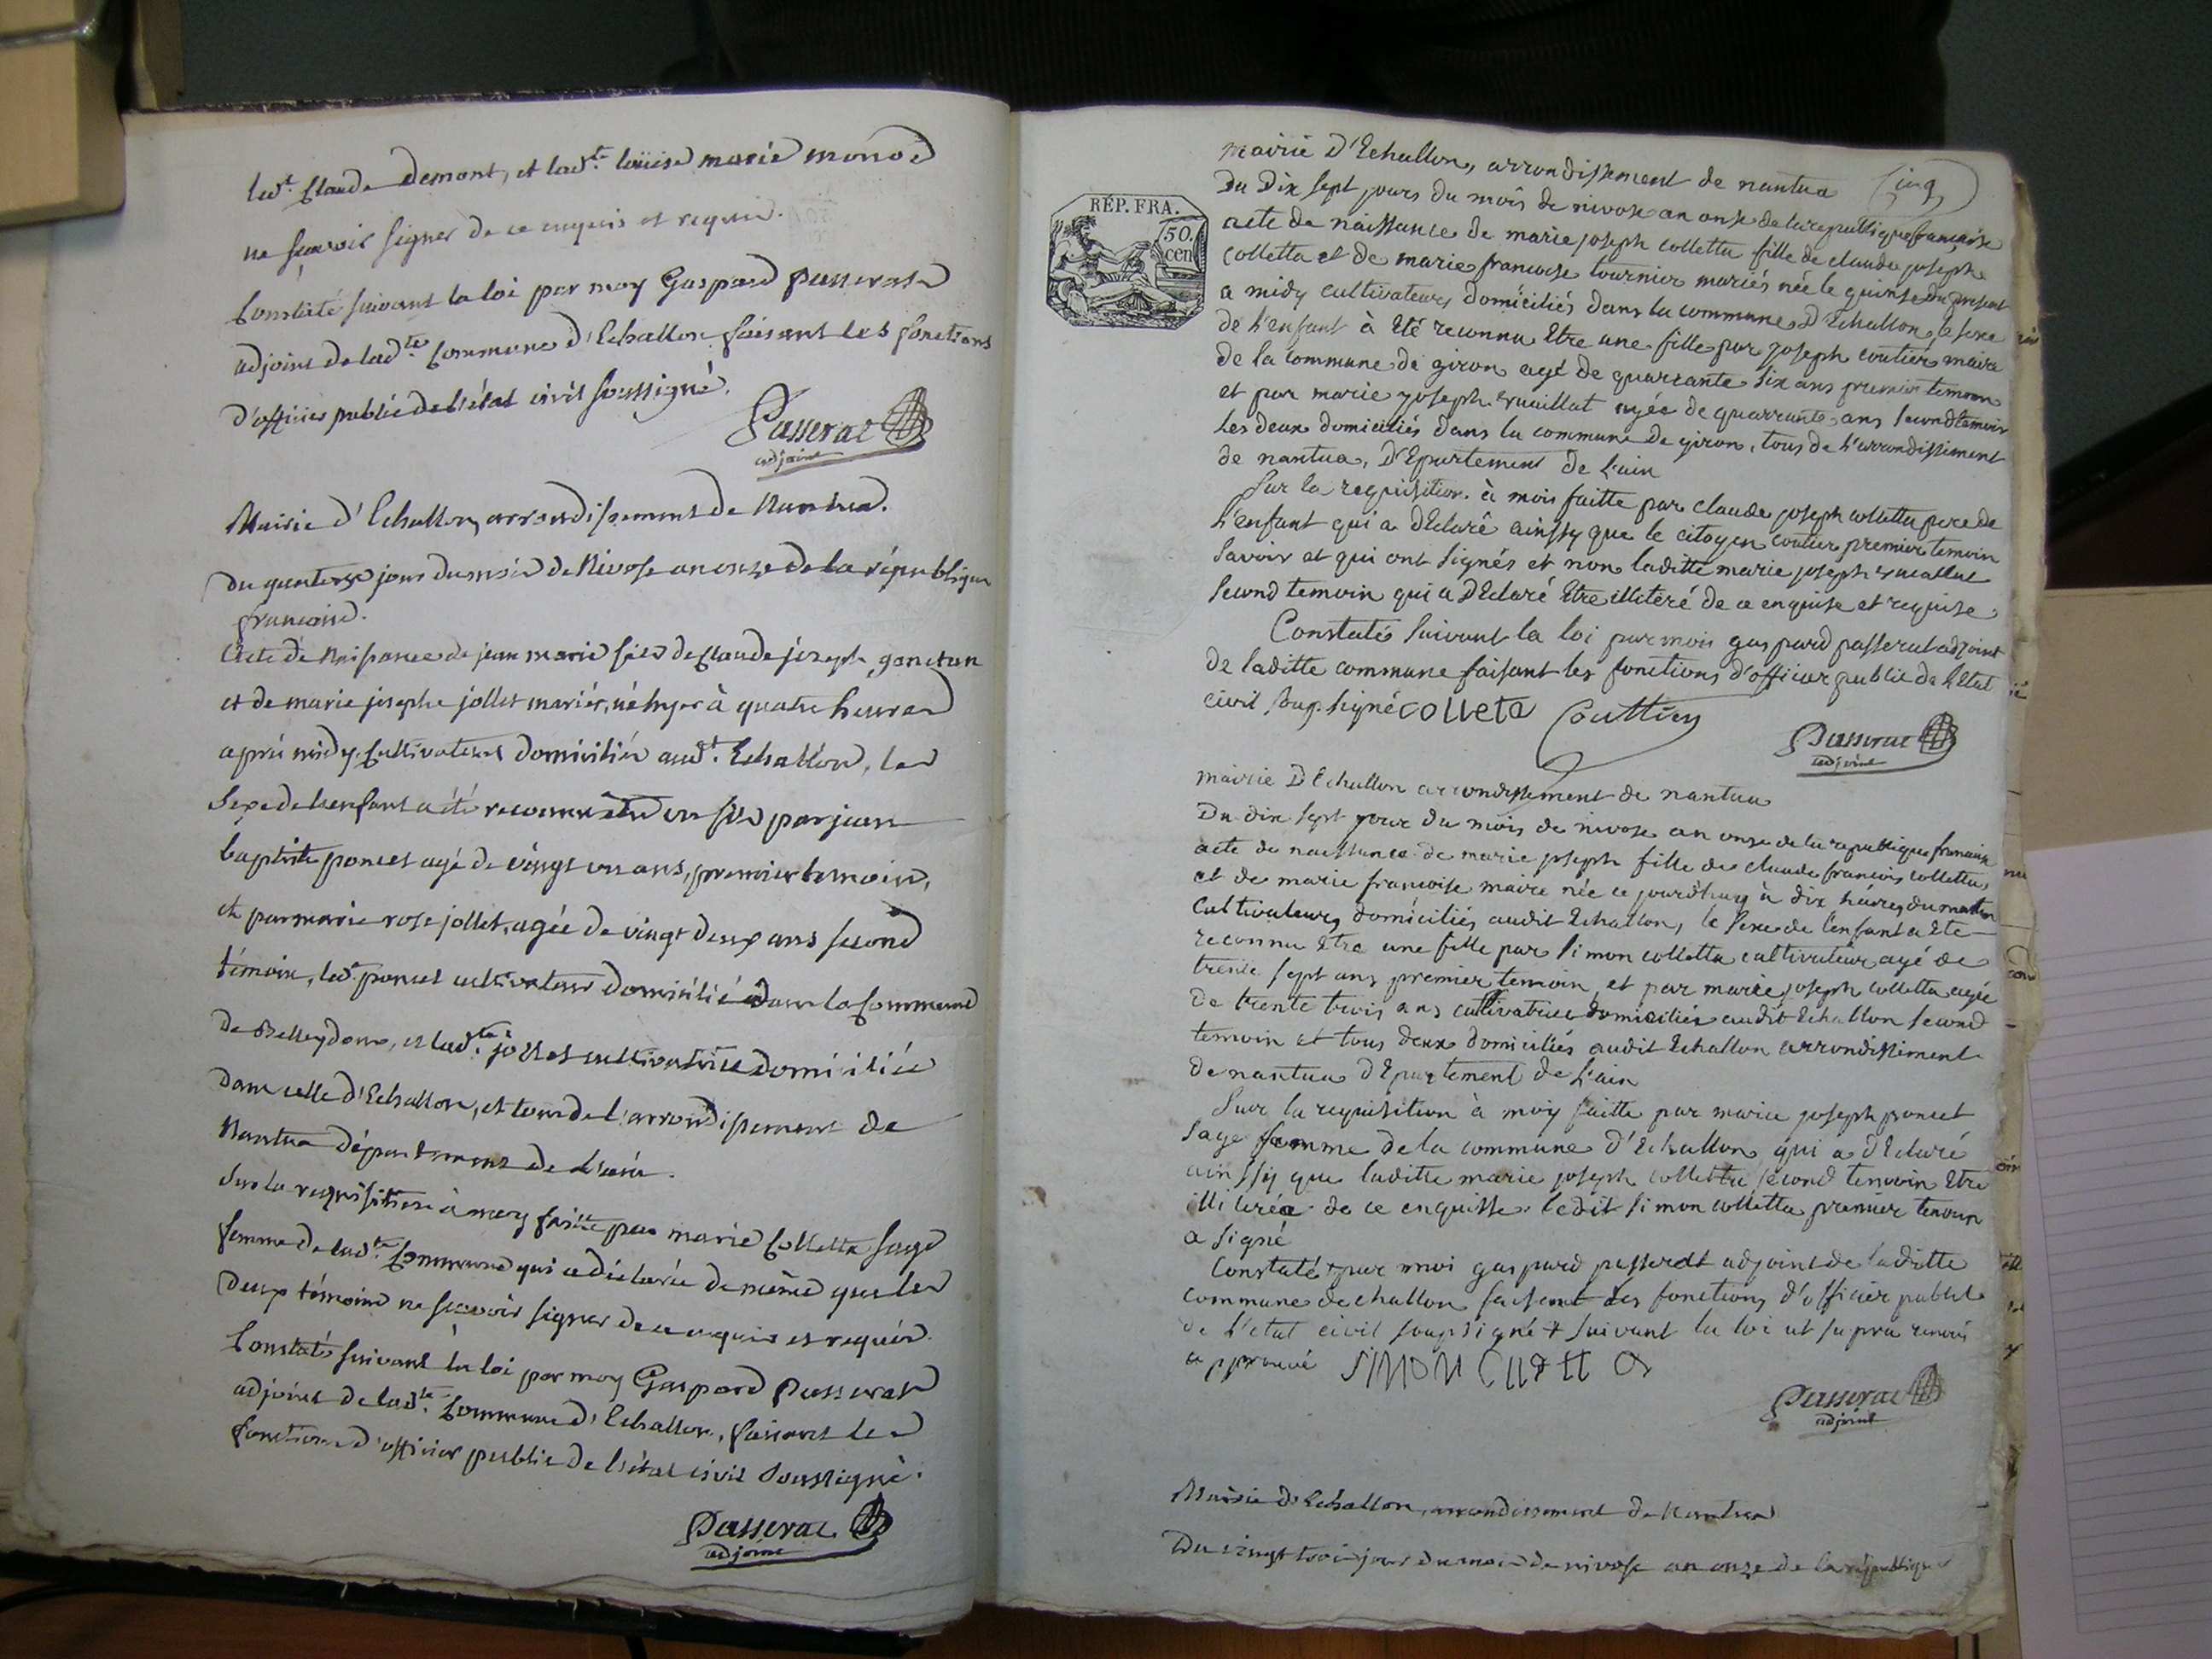 led.t Claude Demont, et lad.te loüise marie monod
ne scavoir signer de ce enquis et requis.
Constaté suivant la loi par moy Gaspard Passerat
adjoint de lad.te Commune d'Echallon faisant les fonctions
d'officier public de l'état civil soussigné.
Passerat
adjoint
Mairie d'Echallon, arrondissement de Nantua.
du quatorze jour du mois de Nivose an onze de la république
francaise.
Acte de Naissance de jean marie fils de Claude joseph gonetan
et de marie josephe jollet mariés, né hyer à quatre heures
après midy, Cultivateurs domiciliés aud.t Echallon, le
sexe de l'enfant a été reconnu être un fils par jean
baptiste poncet agé de vingt un ans, premier temoin,
et par marie rose jollet, agée de vingt deux ans second
témoin, led.t poncet cultivateur domicilié dans la Commune
de Belleydoux, et lad.te jollet cultivatrice domiciliée
dans celle d'Echallon, et tous de l'arrondissement de
Nantua département de l'ain.
Sur la requisition à moy faitte par marie Colletta sage
femme de lad.te Commune qui a déclarée de même que les
deux témoins ne scavoir signer de ce enquis et requis.
Constaté suivant la loi par moy Gaspard Passerat
adjoint de lad.te Commune d'Echallon, faisant les
fonctions d'officier public de l'état civil soussigné.
Passerat
adjoint
mairie d'Echallon, arrondissement de nantua Cinq
RÉP. FRA.
50.
cen
Du Dix sept jours du mois de nivose an onse de la republique francaise
acte de naissance de marie joseph colletta fille de claude joseph
colletta et de marie francoise tournier mariés née le quinse du present
a midy cultivateurs domiciliés dans la commune d'Echallon, le sexe
de l'enfant à été reconnu Etre une fille par joseph coutier maire
de la commune de giron agé de quarrante six ans premier temoin
et par marie joseph vuaillat agée de quarrante ans second temoin
Les deux domiciliés dans la commune de giron, tous de l'arrondissement
de nantua, Département de l'ain
Sur la requisition à mois faitte par claude joseph colletta pere de
l'enfant qui a déclaré ainssy que le citoyen coutier premier temoin
savoir et qui ont signés et non laditte marie joseph vuaillat
second temoin qui a déclaré Etre illiteré de ce enquise et requise
Constaté suivant la loi par mois gaspard passerat adjoint
de laditte commune faisant les fonctions d'officier public de l'Etat
civil soussigné colleta Couttier
Passerat
adjoint
mairie D'Echallon arrondissement de nantua
Du dix sept jour du mois de nivose an onze de la republique francaise
acte de naissance de marie joseph fille de claude francois colletta
et de marie francoise maire née ce jourd'huy à dix heures du matin
Cultivateurs domiciliés audit Echallon, le sexe de l'enfant a Eté
reconnu Etre une fille par simon colletta cultivateur agé de
trente sept ans premier temoin et par marie joseph colletta agée
de trente trois ans cultivatrice domiciliée audit Echallon second
temoin et tous deux domiciliés audit Echallon arrondissement
de nantua département de l'ain
Sur la requisition à moy faitte par marie joseph poncet
sage femme de la commune d'Echallon qui a declaré
ainssy que laditte marie joseph colletta second temoin Etre
illiterée de ce enquisse ledit simon colletta premier temoin
a signé
Constaté + par moi gaspard passerat adjoint de laditte
commune dechallon faisant les fonctions d'officier public
de l'etat civil soussigné + suivant la loi ut supra renvois
approuvé SIMON
Passerat
adjoint
Mairie d'Echallon, arrondissement de Nantua
Du vingt trois jour du mois de nivose an onze de la république